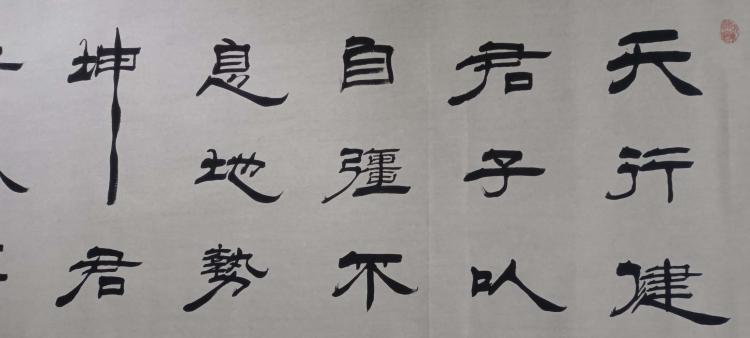 天行健
君子以
自彊不
息地勢
坤君